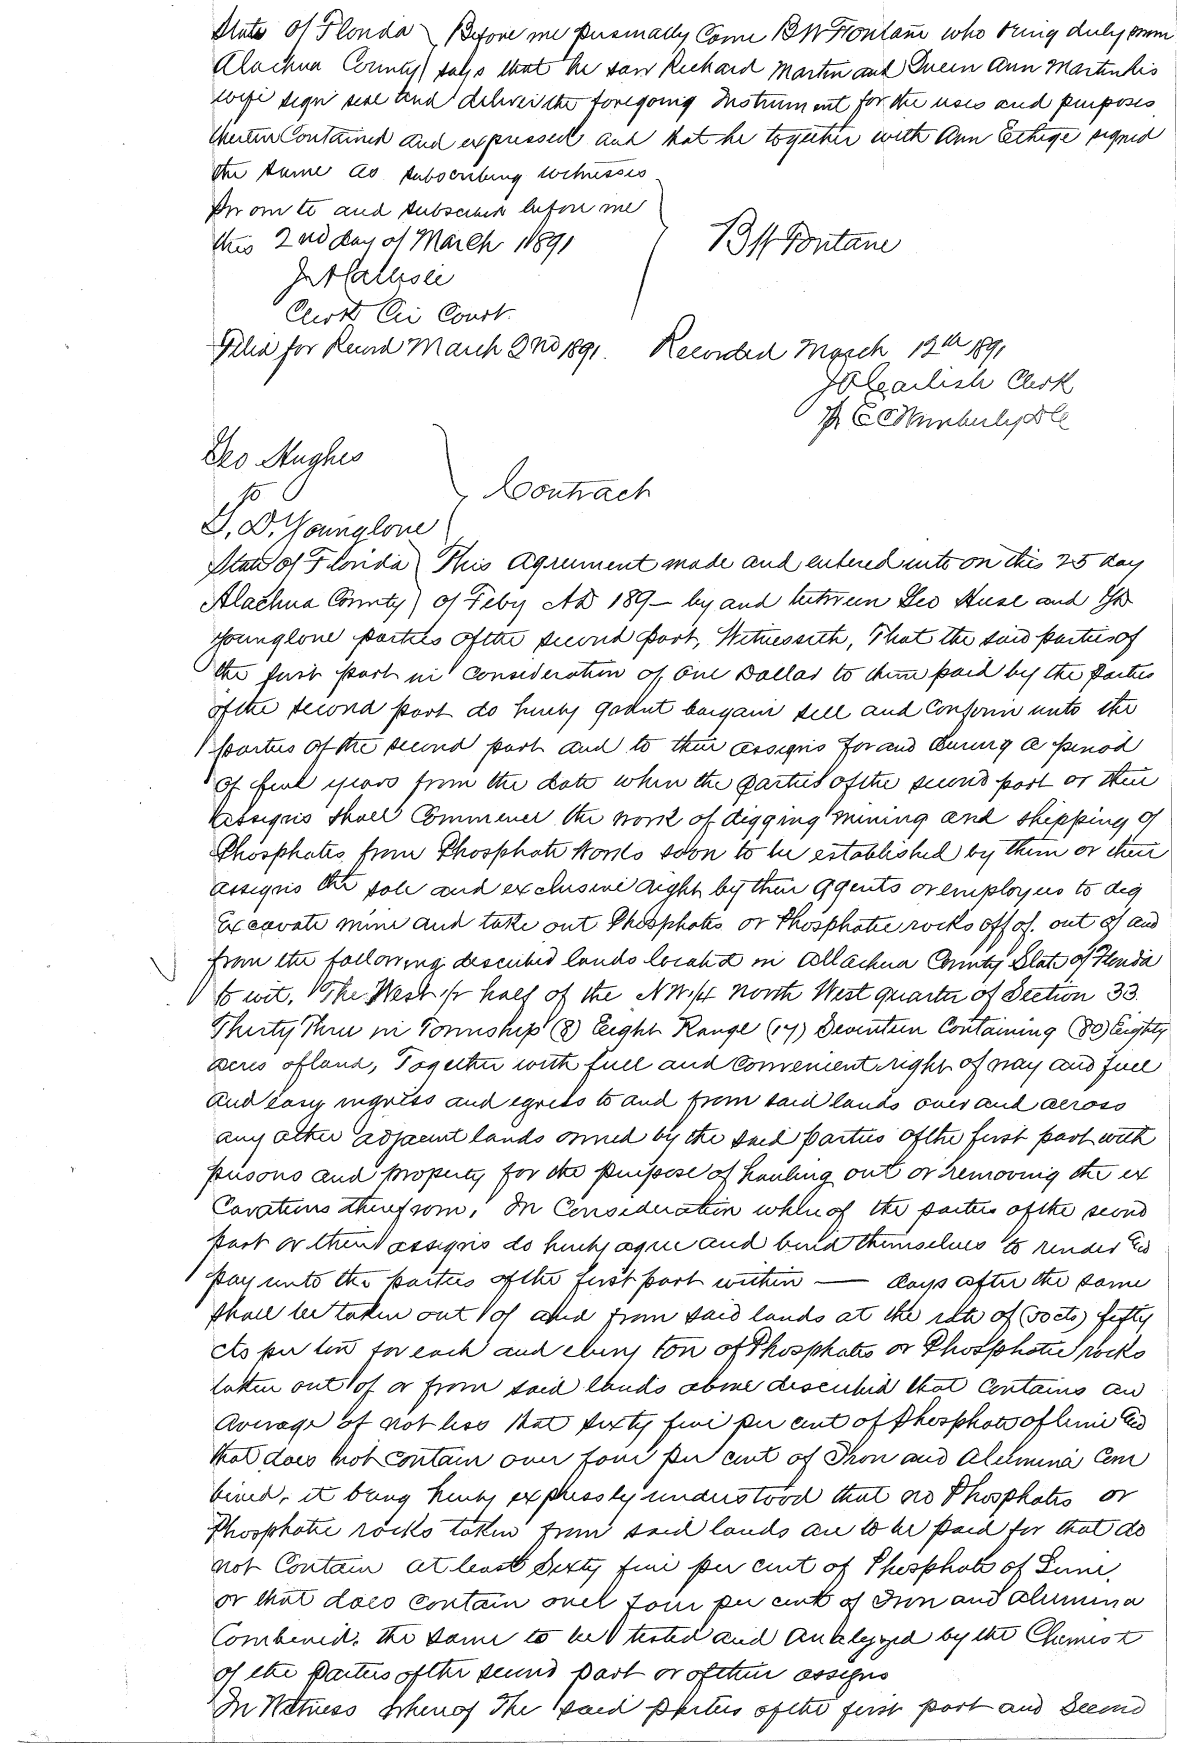 State of Florida } Before me personally come B W Fontane who being duly sworn
Alachua County } says that he saw Richard Martin and Queen Ann Martin his
wife sign seal and deliver the foregoing Instrument for the uses and purposes
therein Contained and expressed and that he together with Ann signed
the same as subscribing witnesses
Sworn to and subscribed before me
this 2nd day of March 1891
B W Fontane
J A Carlisle
Clerk Cir Court.
Filed for Record March 2nd 1891. Recorded March 12th 1891
J A Carlisle Clerk
Pr E C Wimberly D C
Geo Hughes
to } Contract
Y. D. Younglove
State of Florida } This Agreement made and entered into on this 25 day
Alachua County } of Feby AD 189— by and between Geo Huse and YD
Younglove parties of the second part, Witnesseth, That the said parties of
the first part in consideration of One Dollar to them paid by the parties
of the second part do hereby grant bargain sell and confirm unto the
parties of the second part and to their assigns for and during a period
of five years from the date when the parties of the second part or their
assigns shall Commence the work of digging mining and shipping of
Phosphates from Phosphate Works soon to be established by them or their
assigns the sole and exclusive right by their agents or employees to dig
Excavate mine and take out Phosphates or Phosphatic rocks off of. out of and
from the following described lands located in Allachua County State of Florida
to wit. The West ½ half of the NW¼ North West quarter of Section 33
Thirty Three in Township (8) Eight Range (17) Seventeen Containing (80) Eighty
acres of land, Together with full and convenient right of way and full
and easy ingress and egress to and from said lands over and across
any other adjacent lands owned by the said parties of the first part with
persons and property for the purpose of hauling out or removing the ex
cavations therefrom, In Consideration whereof the parties of the second
part or their assigns do hereby agree and bind themselves to render and
pay unto the parties of the first part within — days after the same
shall be taken out of and from said lands at the rate of (50cts) fifty
cts per ton for each and every ton of Phosphates or Phosphatic rocks
taken out of or from said lands above described that contains an
average of not less that sixty five per cent of Phosphate of lime and
that does not contain over four per cent of Iron and Alumina Com
bined, it being hereby expressly understood that no Phosphates or
Phosphatic rocks taken from said lands are to be paid for that do
not Contain at least Sixty five per cent of Phosphate of Lime,
or that does contain over four per cent of Iron and alumina
Combined. the same to be tested and Analyzed by the Chemist
of the parties of the second part or of their assigns
In Witness whereof The said parties of the first part and Second